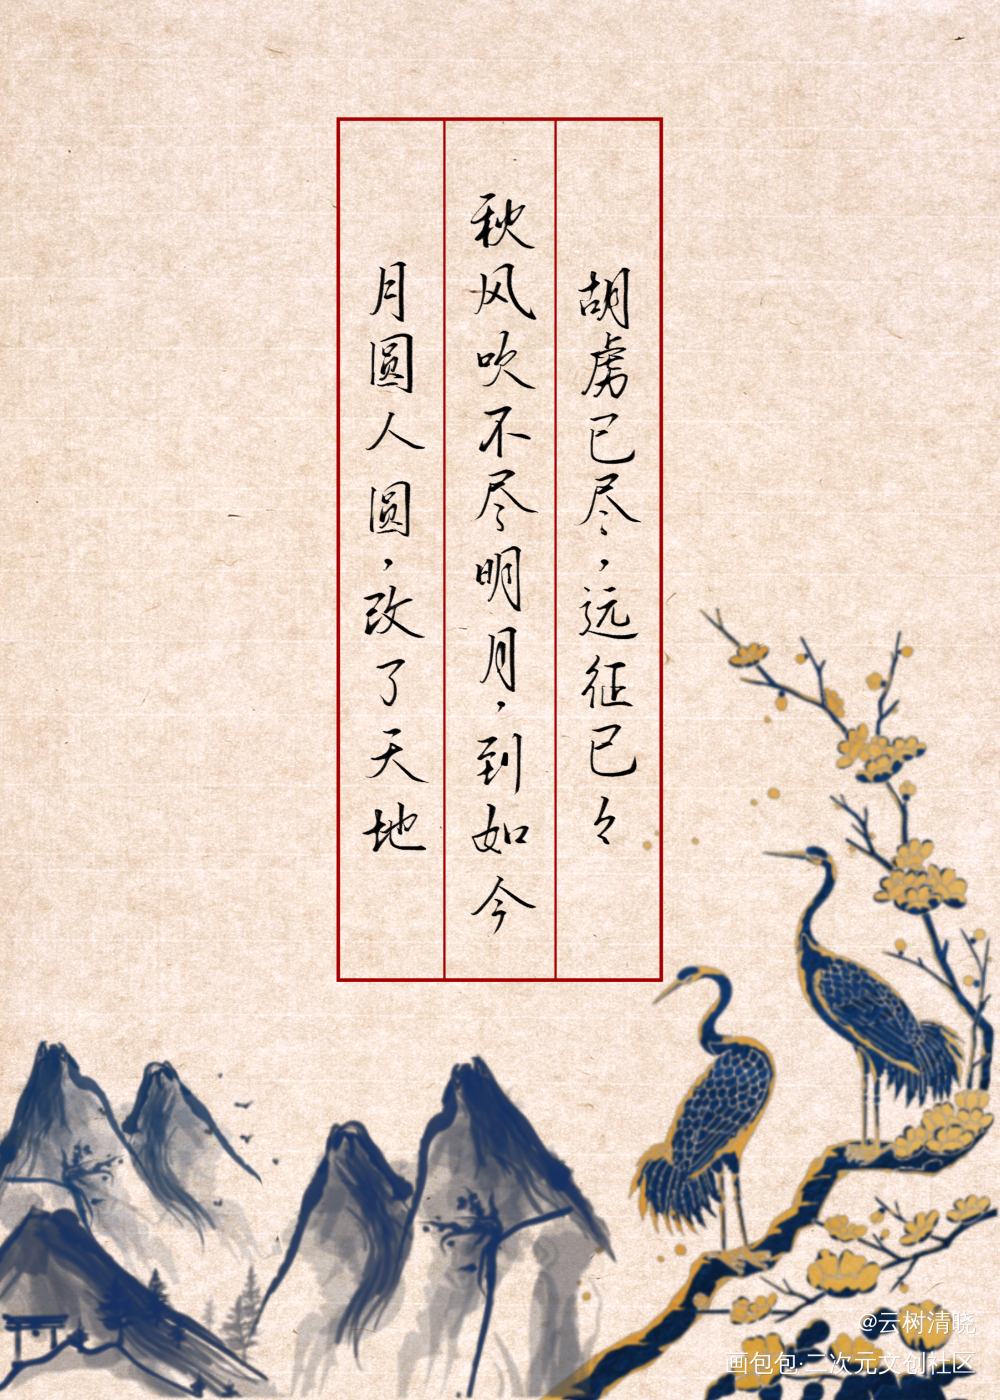 胡虏已尽，远征已々
秋风吹不尽明月，到如今
月圆人圆，改了天地
@云树清晓
画包包·二次元文创社区